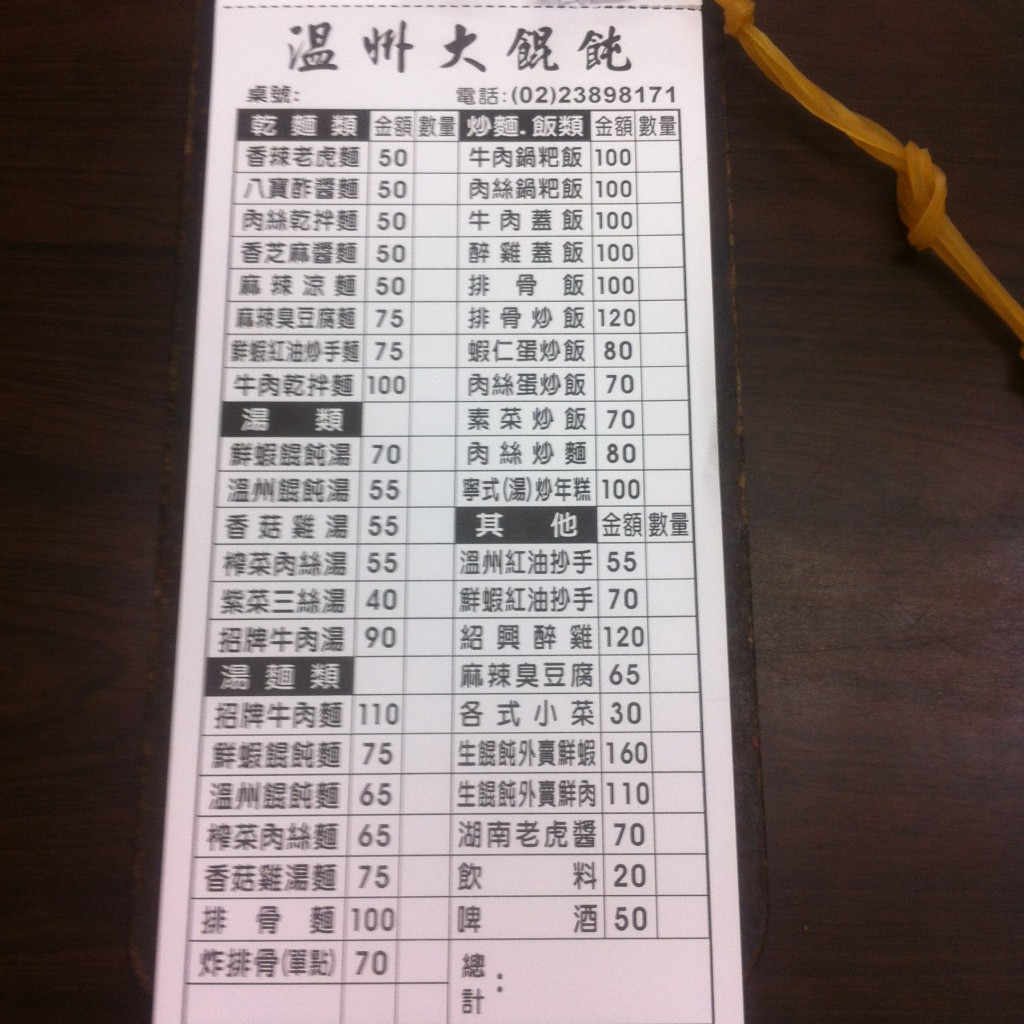 溫州大餛飩
桌號: 電話:(02)23898171
乾麵類 金額 數量
香辣老虎麵 50
八寶酢醬麵 50
肉絲乾拌麵 50
香芝麻醬麵 50
麻辣涼麵 50
麻辣臭豆腐麵 75
鮮蝦紅油炒手麵 75
牛肉乾拌麵 100
湯類
鮮蝦餛飩湯 70
溫州餛飩湯 55
香菇雞湯 55
榨菜肉絲湯 55
紫菜三絲湯 40
招牌牛肉湯 90
湯麵類
招牌牛肉麵 110
鮮蝦餛飩麵 75
溫州餛飩麵 65
榨菜肉絲麵 65
香菇雞湯麵 75
排骨麵 100
炸排骨(單點) 70
炒麵.飯類 金額 數量
牛肉鍋粑飯 100
肉絲鍋粑飯 100
牛肉蓋飯 100
醉雞蓋飯 100
排骨飯 100
排骨炒飯 120
蝦仁蛋炒飯 80
肉絲蛋炒飯 70
素菜炒飯 70
肉絲炒麵 80
寧式(湯)炒年糕 100
其他 金額 數量
溫州紅油抄手 55
鮮蝦紅油抄手 70
紹興醉雞 120
麻辣臭豆腐 65
各式小菜 30
生餛飩外賣鮮蝦 160
生餛飩外賣鮮肉 110
湖南老虎醬 70
飲料 20
啤酒 50
總計: